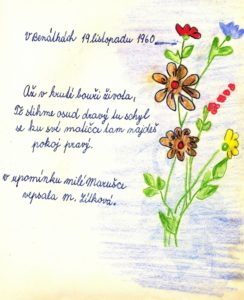 V Benátkách 19. listopadu 1960
Až v kruté bouři života,
Tě stihne osud dravý tu schyl
se ku své matičce tam najdeš
pokoj pravý.
v upomínku milé Marušce
vepsala M. Žitková.